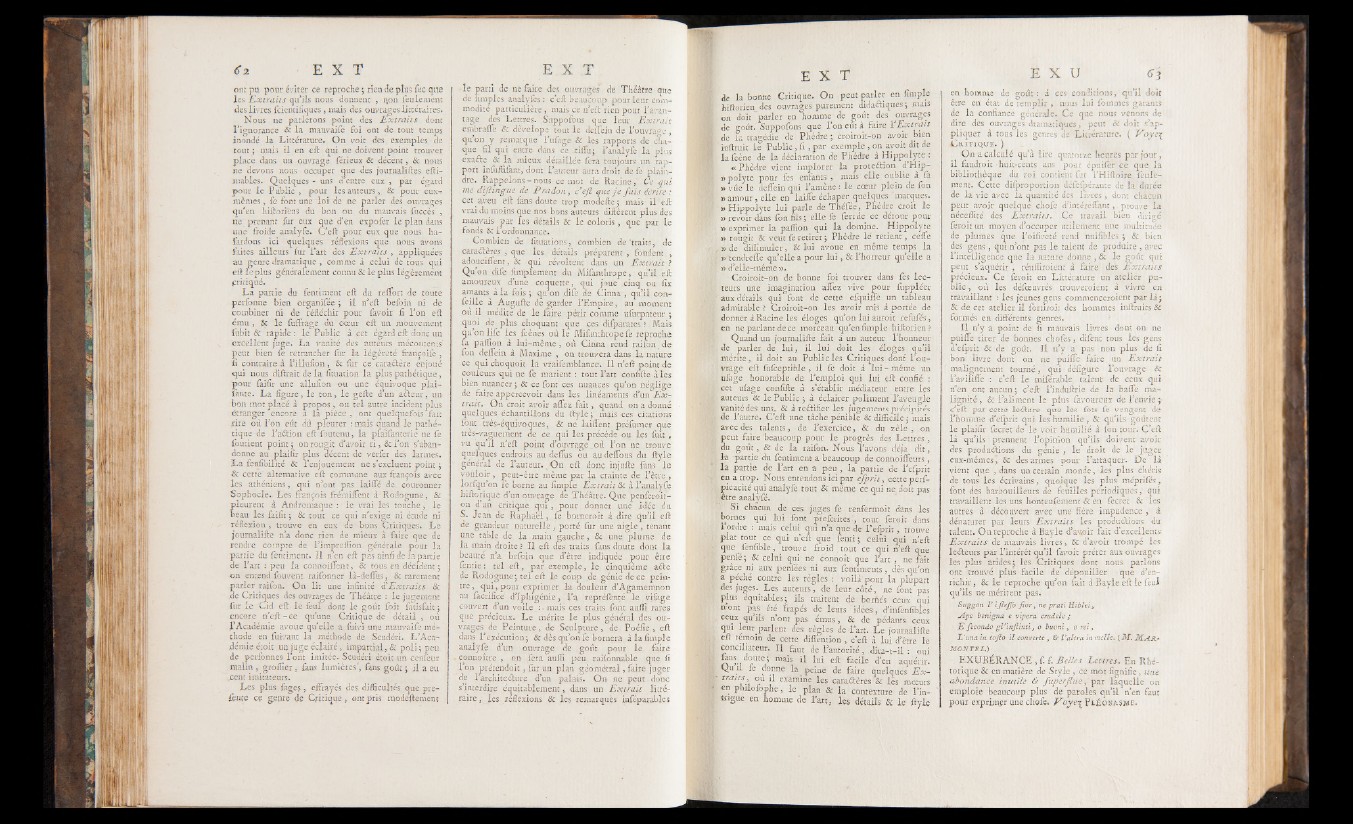 62 E X T
ont pu pour éviter ce reproche ; rien de plus sec que
les Extraits qu'ils nous donnent , non seulement
des livres scientifiques , mais des ouvrages littéraires.
Nous ne parlerons point des Extraits dont
l'ignorance & la mauvaise foi ont de tout temps
inondé la Littérature. On voit des exemples de
tout ; mais il en est qui ne doivent point trouver
place dans un ouvrage sérieux & décent , & nous
ne devons nous occuper que des journalistes esti-
mables. Quelques - uns d'entre eux , par égard
pour le Public , pour les auteurs , & pour eux-
mêmes , se font une loi de ne parler des ouvrages
qu'en historiens du bon ou du mauvais succès ,
ne prenant sur eux que d'en exposer le plan dans
une froide analyse. C'est pour eux que nous ha-
sardons ici quelques réflexions que nous avons
faites ailleurs sur l'art des Extraits , appliquées
au genre dramatique , comme à celui de tous qui
est le plus généralement connu & le plus légèrement
critiqué.
La partie du sentiment est du ressort de toute
personne bien organisée ; il n'est besoin ni de
combiner ni de réfléchir pour savoir si l'on est
ému , & le suffrage du cœur est un mouvement
subit & rapide : le Public à cet égard est donc un
excellent juge. La vanité des auteurs mécontents
peut bien se retrancher sur la légèreté françoise ,
si contraire à l'illusion , & sur ce caractère enjoué
qui nous distrait de la situation la plus pathétique ,
pour saisir une allusion ou une équivoque plai-
sante. La figure , le ton , le geste d'un acteur , un
bon mot placé à propos , ou tel autre incident plus
étranger encore à la pièce , ont quelquefois fait
rire où l'on eût dû pleurer : mais quand le pathé-
tique de l'action est soutenu , la plaisanterie ne se
soutient point ; on rougit d'avoir ri , & l'on s'aban-
donne au plaisir plus décent de verser des larmes.
La sensibilité & l'enjouement ne s'excluent point ;
& cette alternative est commune aux françois avec
les athéniens , qui n'ont pas laissé de couronner
Sophocle. Les françois frémissent à Rodogune , &
pleurent à Andromaque : le vrai les touche , le
beau les saisit ; & tout ce qui n'exige ni étude ni
réflexion , trouve en eux de bons Critiques. Le
journaliste n'a donc rien de mieux à faire que de
rendre compte de l'impression générale pour la
partie du sentiment. Il n'en est pas ainsi de la partie
de l'art : peu la connoissent , & tous en décident ;
on entend souvent raisonner là-dessus , & rarement
parler raison. On lit une infinité d'Extraits &
de Critiques des ouvrages de Théâtre : le jugement
sur le Cid est le seul dont le goût soit satisfait ;
encore n'est - ce qu'une Critique de détail , où
l'Académie avoue qu'elle a suivi une mauvaise mé-
thode en suivant la méthode de Scudéri. L'Aca-
démie étoit un juge éclairé , impartial , & poli ; peu
de personnes l'ont imitée. Scudéri étoit un censeur
malin , grossier , sans lumières , sans goût ; il a eu
cent imitateurs.
Les plus sages , effrayés des difficultés que pré-
sente ce genre de Critique , ont pris modestement
E X T
le parti de ne faire des ouvrages de Théâtre que
de simples analyses : c'est beaucoup pour leur com-
modité particulière , mais ce n'est rien pour l'avan-
tage des Lettres. Supposons que leur Extrait
embrasse & dévelope tout le dessein de l'ouvrage ,
qu'on y remarque l'usage & les rapports de cha-
que fil qui entre dans ce tissu ; l'analyse la plus
exacte & la mieux détaillée sera toujours un rap-
port insuffisant, dont l'auteur aura droit de se plain-
dre. Rappelons - nous ce mot de Racine, Ce qui
me distingue de Pradon , c'est que je sais écrire :
cet aveu est sans doute trop modeste ; mais il est
vrai du moins que nos bons auteurs diffèrent plus des
mauvais par les détails & le coloris , que par le
fonds & l'ordonnance.
Combien de situations , combien de traits , de
caractères , que les détails préparent , fondent ,
adoucissent , & qui révoltent dans un Extrait ?
Qu'on dise simplement du Misanthrope , qu'il est
amoureux d'une coquette , qui joue cinq ou six
amants à la fois ; qu'on dise de Cinna , qu'il con-
seille à Auguste de garder l'Empire , au moment
où il médite de le faire périr comme usurpateur ;
quoi de plus choquant que ces disparates ? Mais
qu'on lise les scènes où le Misanthrope se reproche
sa passion à lui-même , où Cinna rend raison de
son dessein à Maxime , on trouvera dans la nature
ce qui choquoit la vraisemblance. Il n'est point de
couleurs qui ne se marient : tout l'art consiste à les
bien nuancer ; & ce sont ces nuances qu'on néglige
de faire appercevoir dans les linéaments d'un Ex-
trait. On croit avoir assez fait , quand on a donné
quelques échantillons du style ; mais ces citations
sont très-équivoques , & ne laissent présumer que
très-vaguement de ce qui les précède ou les suit ,
vu qu'il n'est point d'ouvrage où l'on ne trouve
quelques endroits au dessus ou au dessous du style
général de l'auteur. On est donc injuste sans le
vouloir , peut-être même par la crainte de l'être ,
lorsqu'on se borne au simple Extrait & à l'analyse
historique d'un ouvrage de Théâtre. Que penseroit-
on d'un critique qui , pour donner une idée du
S. Jean de Raphaël , se borneroit à dire qu'il est
de grandeur naturelle , porté sur une aigle , tenant
une table de la main gauche , & une plume de
la main droite ? Il est des traits sans doute dont la
beauté n'a besoin que d'être indiquée pour être
sentie : tel est , par exemple , le cinquième acte
de Rodogune ; tel est le coup de génie de ce pein-
tre , qui , pour exprimer la douleur d'Agamemnon
au sacrifice d'Iphigénie , l'a représenté le visage
couvert d'un voile : mais ces traits sont aussi rares
que précieux. Le mérite le plus général des ou-
vrages de Peinture , de Sculpture , de Poésie , est
dans l'exécution ; & dès qu'on se bornera à la simple
analyse d'un ouvrage de goût pour le faire
connoître , on sera aussi peu raisonnable que si
l'on prétendoit , sur un plan géométral , faire juger
de l'architecture d'un palais. On ne peut donc
s'interdire équitablement , dans un Extrait litté-
raire , les réflexions & les remarques inséparables
E X T
de la bonne Critique. On peut parler en simple
historien des ouvrages purement didactiques ; mais
on doit parler en homme de goût des ouvrages
de goût. Supposons que l'on eût à faire l'Extrait
de la tragédie de Phèdre ; croiroit-on avoir bien
instruit le Public, si , par exemple , on avoit dit de
la scène de la déclaration de Phèdre à Hippolyte :
« Phèdre vient implorer la protection d'Hip-
» polyte pour ses enfants , mais elle oublie à sa
» vûe le dessein qui l'amène : le cœur plein de son
» amour , elle en laisse échaper quelques marques.
» Hippolyte lui parle de Thésée, Phèdre croit le
» revoir dans son fils ; elle se sert de ce détour pour
» exprimer la passion qui la domine. Hippolyte
» rougit & veut se retirer ; Phèdre le retient , cesse
» de dissimuler , & lui avoue en même temps la
» tendresse qu'elle a pour lui , & l'horreur qu'elle a
» d'elle-même ».
Croiroit-on de bonne foi trouver dans ses lec-
teurs une imagination assez vive pour suppléer
aux détails qui font de cette esquisse un tableau
admirable ? Croiroit-on les avoir mis à portée de
donner à Racine les éloges qu'on lui auroit refusés,
en ne parlant de ce morceau qu'en simple historien ?
Quand un journaliste fait à un auteur l'honneur
de parler de lui , il lui doit les éloges qu'il
mérite , il doit au Public les Critiques dont l'ou-
vrage est susceptible , il se doit à lui - même un
usage honorable de l'emploi qui lui est confié :
cet usage consiste à s'établir médiateur entre les
auteurs & le Public ; à éclairer poliment l'aveugle
vanité des uns, & à rectifier les jugements précipités
de l'autre. C'est une tâche pénible & difficile ; mais
avec des talents , de l'exercice , & du zèle , on
peut faire beaucoup pour le progrès des Lettres ,
du goût , & de la raison. Nous l'avons déja dit ,
la partie du sentiment a beaucoup de connoisseurs ,
la partie de l'art en a peu , la partie de l'esprit
en a trop. Nous entendons ici par esprit , cette pers-
picacité qui analyse tout & même ce qui ne doit pas
être analysé.
Si chacun de ces juges se renfermoit dans les
bornes qui lui sont prescrites , tout seroit dans
l'ordre : mais celui qui n'a que de l'esprit , trouve
plat tout ce qui n'est que senti ; celui qui n'est
que sensible , trouve froid tout ce qui n'est que
pensé ; & celui qui ne connoît que l'art , ne fait
grâce ni aux pensées ni aux sentiments , dès qu'on
a péché contre les règles : voilà pour la plûpart
des juges. Les auteurs , de leur côté , ne sont pas
plus équitables ; ils traitent de bornés ceux qui
n'ont pas été frapés de leurs idées , d'insensibles
ceux qu'ils n'ont pas émus , & de pédants ceux
qui leur parlent des règles de l'art. Le journaliste
est témoin de cette dissention , c'est à lui d'être le
conciliateur. Il faut de l'autorité , dira-t-il : oui
sans doute ; mais il lui est facile d'en aquérir.
Qu'il se donne la peine de faire quelques Ex-
traits , où il examine les caractères & les mœurs
en philosophe , le plan & la contexture de l'in-
trigue en homme de l'art, les détails & le style
E X U 63
en homme de goût : à ces conditions , qu'il doit
être en état de remplir , nous lui sommes garants
de la confiance générale. Ce que nous venons de
dire des ouvrages dramatiques , peut & doit s'ap-
pliquer à tous les genres de Littérature. ( Voyez
CRITIQUE. )
On a calculé qu'à lire quatorze heures par jour ,
il faudroit huit-cents ans pour épuiser ce que la
bibliothéque du roi contient sur l'Histoire seule-
ment. Cette disproportion désespérante de la durée
de la vie avec la quantité des livres , dont chacun
peut avoir quelque chose d'intéressant , prouve la
nécessité des Extraits. Ce travail bien dirigé
seroit un moyen d'occuper utilement une multitude
de plumes que l'oisiveté rend nuisibles ; & bien
des gens , qui n'ont pas le talent de produire , avec
l'intelligence que la nature donne , & le goût qui
peut s'aquérir , réussiroient à faire des Extraits
précieux. Ce seroit en Littérature un atelier pu-
blic , où les désœuvrés trouveroient à vivre en
travaillant : les jeunes gens commenceroient par là ;
& de cet atelier il sortiroit des hommes instruits &
formés en différents genres.
Il n'y a point de si mauvais livres dont on ne
puisse tirer de bonnes choses , disent tous les gens
d'esprit & de goût. Il n'y a pas non plus de si
bon livre dont on ne puisse faire un Extrait
malignement tourné , qui défigure l'ouvrage &
l'avilisse : c'est le misérable talent de ceux qui
n'en ont aucun ; c'est l'industrie de la basse ma-
lignité , & l'aliment le plus savoureux de l'envie ;
c'est par cette lecture que les sots se vengent de
l'homme d'esprit qui les humilie , & qu'ils goûtent
le plaisir secret de le voir humilié à son tour. C'est
là qu'ils prennent l'opinion qu'ils doivent avoir
des productions du génie , le droit de le juger
eux-mêmes , & des armes pour l'attaquer. De là
vient que , dans un certain monde , les plus chéris
de tous les écrivains , quoique les plus méprisés ,
sont des barbouilleurs de feuilles périodiques , qui
travaillent les uns honteusement & en secret & les
autres à découvert avec une fière impudence , à
dénaturer par leurs Extraits les productions du
talent. On reproche à Bayle d'avoir fait d'excellents
Extraits de mauvais livres , & d'avoir trompé les
lecteurs par l'intérêt qu'il savoit prêter aux ouvrages
les plus arides ; les Critiques dont nous parlons
ont trouvé plus facile de dépouiller que d'en-
richir , & le reproche qu'on fait à Bayle est le seul
qu'ils ne méritent pas.
Suggon l'istesso fior , ne prati Hiblei ,
Ape benigna e vipera crudele ;
E secondo gl'instinti , o buoni , o rei ,
L'una in tosco il converte , & l'altra in melle. (M. MAR-
MONTEL.)
EXUBÉRANCE , f. f. Belles Lettres. En Rhé-
torique & en matière de Style , ce mot signifie , une
abondance inutile & superflue , par laquelle on
emploie beaucoup plus de paroles qu'il n'en faut
pour exprimer une chose. Voyez PLÉONASME.